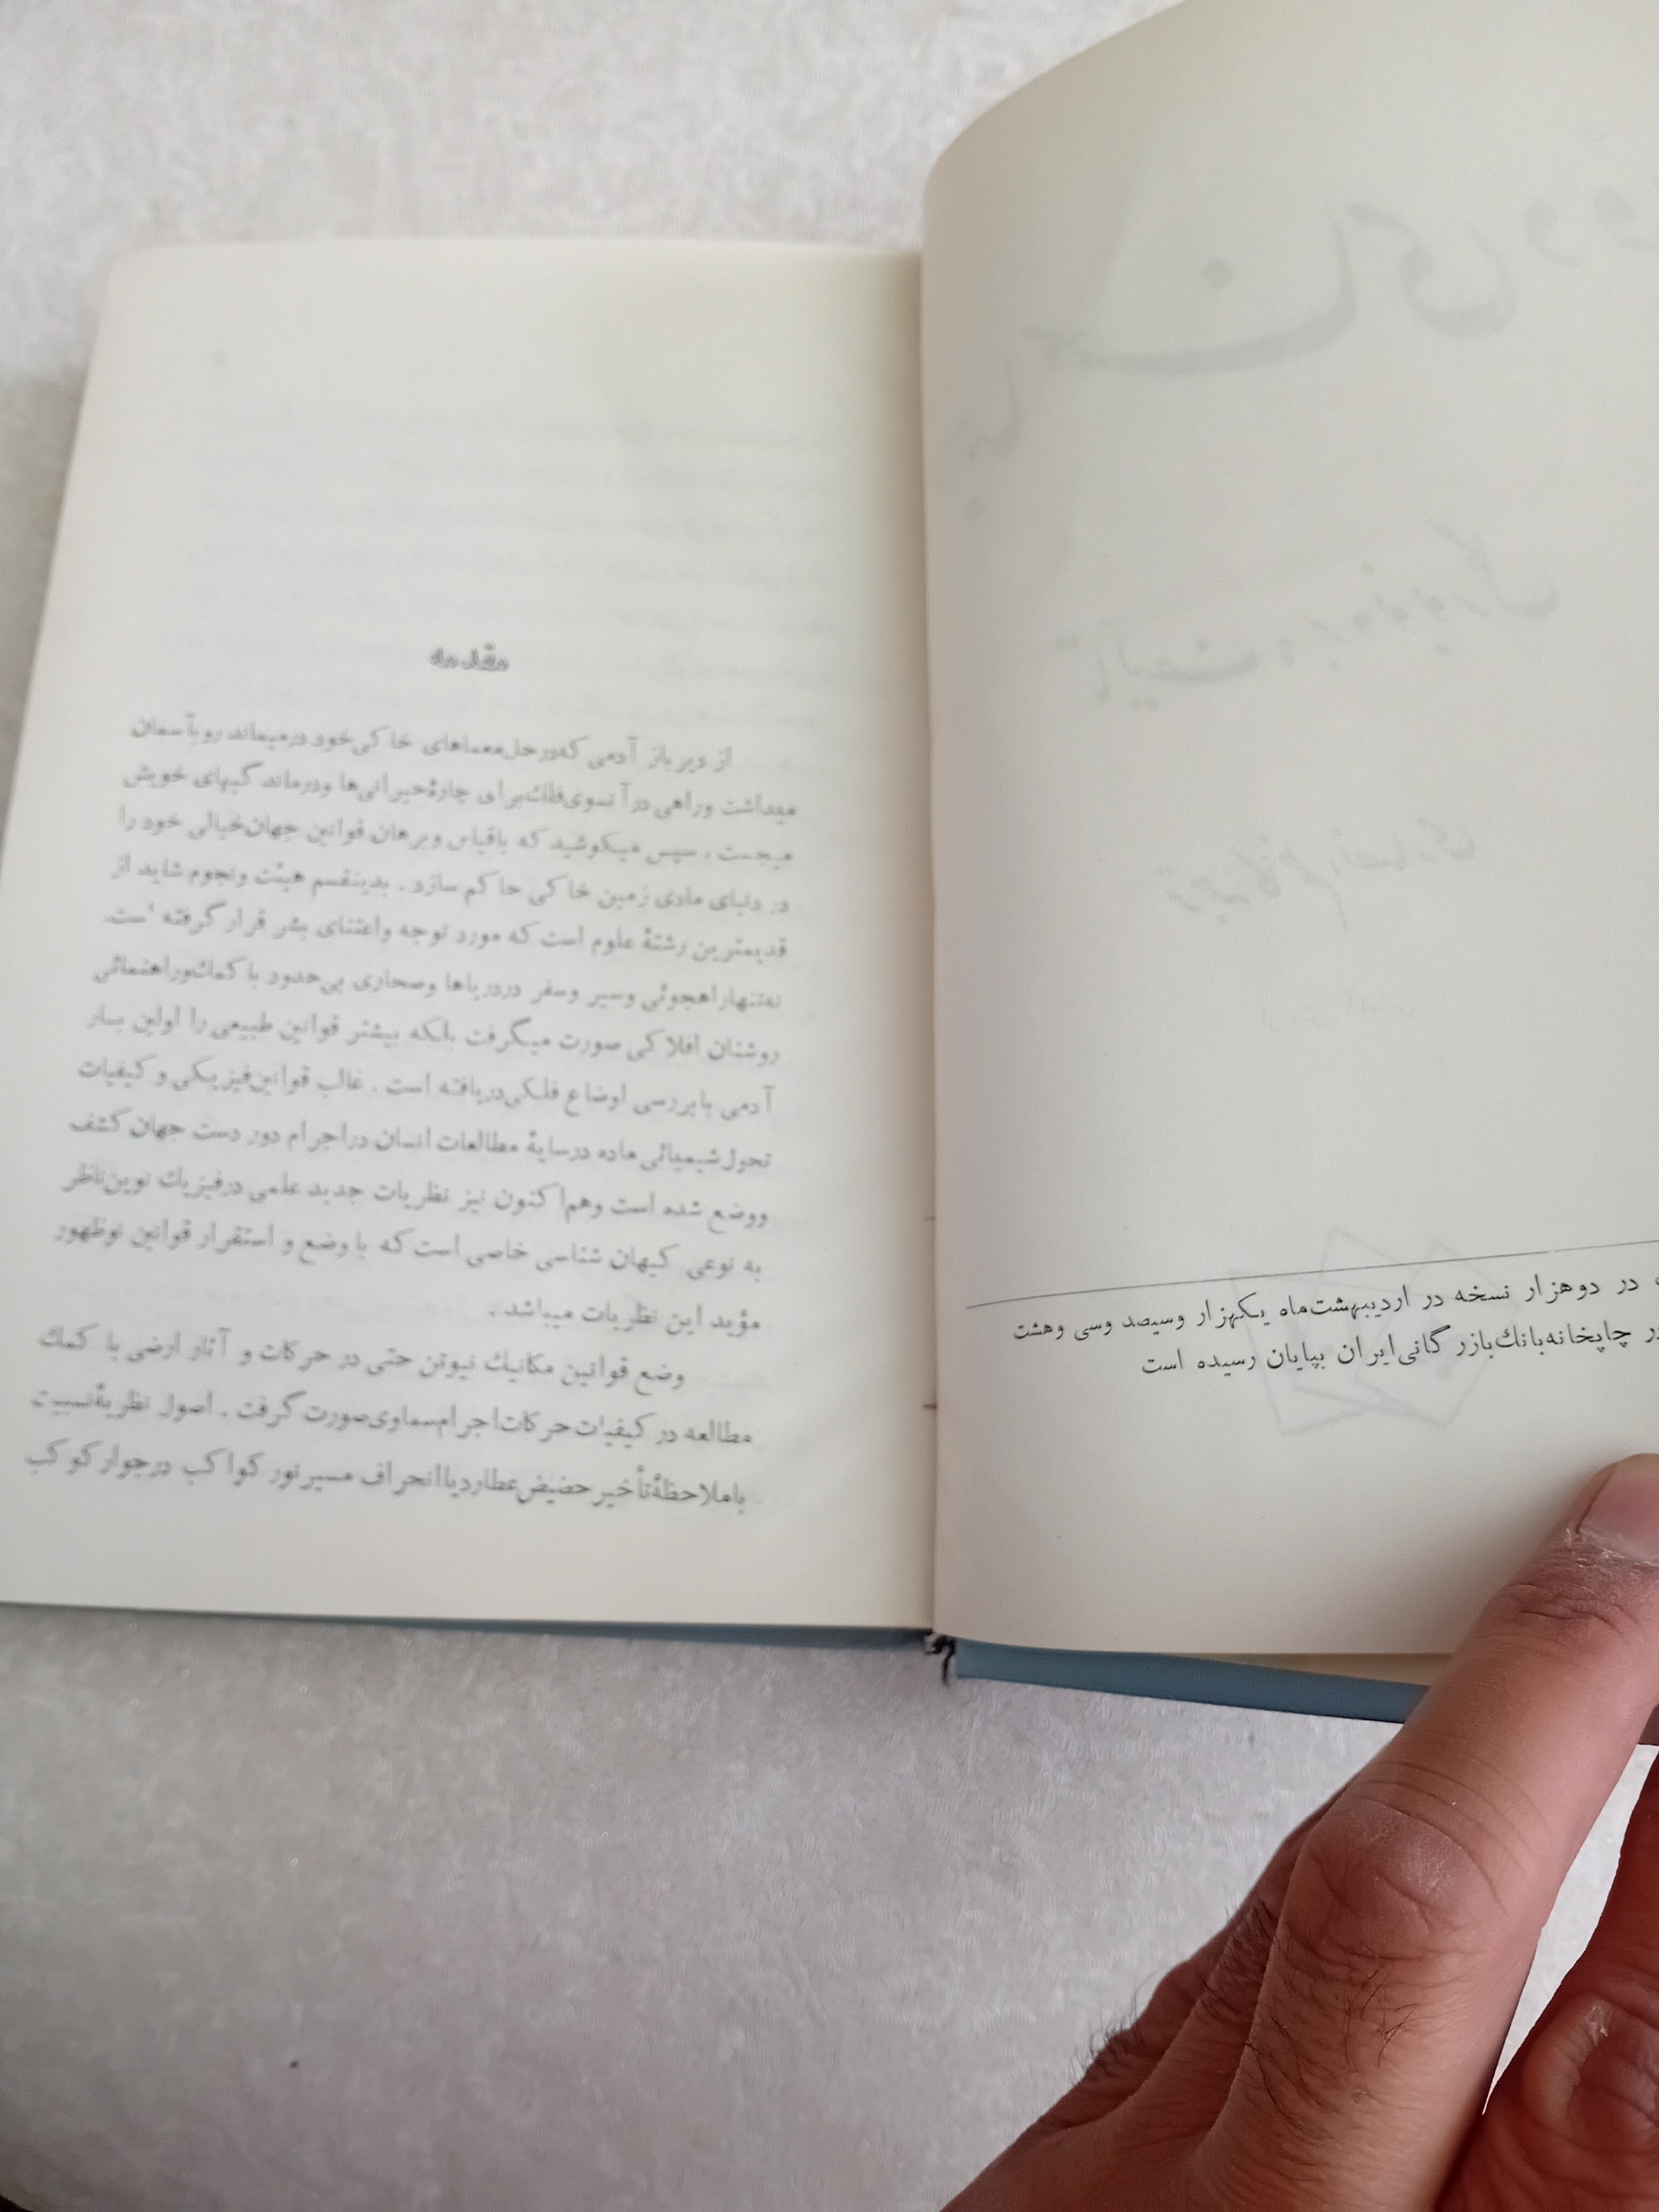 در دوهزار نسخه در اردیبهشت‌ماه یکهزار وسیصد وسی وهشت
چاپخانه بانك بازرگانی ایران بپایان رسیده است
مقدمه
از دیر باز آدمی که در حل معماهای خاکی خود درمیماند رو بآسمان
میداشت وراهی در آنسوی فلك برای چارهٔ حیرانی‌ها ودرماندگیهای خویش
میجست ، سپس میکوشید که باقیاس وبرهان قوانین جهان خیالی خود را
در دنیای مادی زمین خاکی حاکم سازد . بدینقسم هیئت ونجوم شاید از
قدیمترین رشتهٔ علوم است که مورد توجه واعتنای بشر قرار گرفته است.
نه‌تنها راهجوئی وسیر وسفر در دریاها وصحاری بی‌حدود با کمك وراهنمائی
روشنان افلاکی صورت میگرفت بلکه بیشتر قوانین طبیعی را اولین بار
آدمی با بررسی اوضاع فلکی دریافته است . غالب قوانین فیزیکی و کیفیات
تحول شیمیائی ماده در سایهٔ مطالعات انسان در اجرام دور دست جهان کشف
ووضع شده است وهم اکنون نیز نظریات جدید علمی در فیزیك نوین ناظر
به نوعی کیهان شناسی خاصی است که با وضع و استقرار قوانین نوظهور
مؤید این نظریات میباشد .
وضع قوانین مکانیك نیوتن حتی در حرکات و آثار ارضی با کمك
مطالعه در کیفیات حرکات اجرام سماوی صورت گرفت . اصول نظریهٔ نسبیت
با ملاحظهٔ تأخیر حضیض عطارد یا انحراف مسیر نور کواکب در جوار کوکب